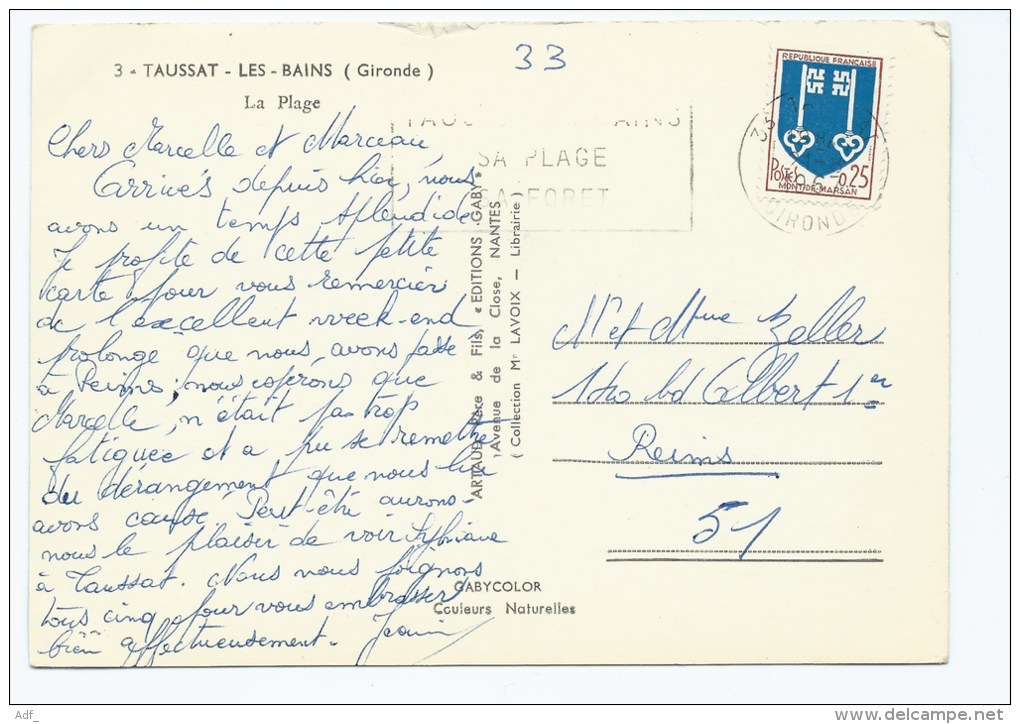 33
3 - TAUSSAT - LES - BAINS ( Gironde )
La Plage
SA PLAGE
SA FORET
REPUBLIQUE FRANÇAISE
POSTES 0.25
MONT-DE-MARSAN
GIRONDE
Chers Marcelle et Marceau,
Arrivés depuis hier, nous
avons un temps splendide
je profite de cette petite
carte pour vous remercier
de l'excellent week-end
prolongé que nous avons passé
à Reims, nous espérons que
Marcelle, n'était pas trop
fatiguée et a pu se remettre
du dérangement que nous lui
avons causé. Peut-être aurons-
nous le plaisir de voir Sylviane
à Taussat. Nous nous joignons
tous cinq pour vous embrasser
bien affectueusement.
ARTAUD Père & Fils, « EDITIONS GABY »
Avenue de la Close, NANTES
( Collection Mr LAVOIX — Librairie )
Mr et Mme Zeller
140 bd Albert 1er
Reims
51
GABYCOLOR
Couleurs Naturelles
Adf_
www.delcampe.net